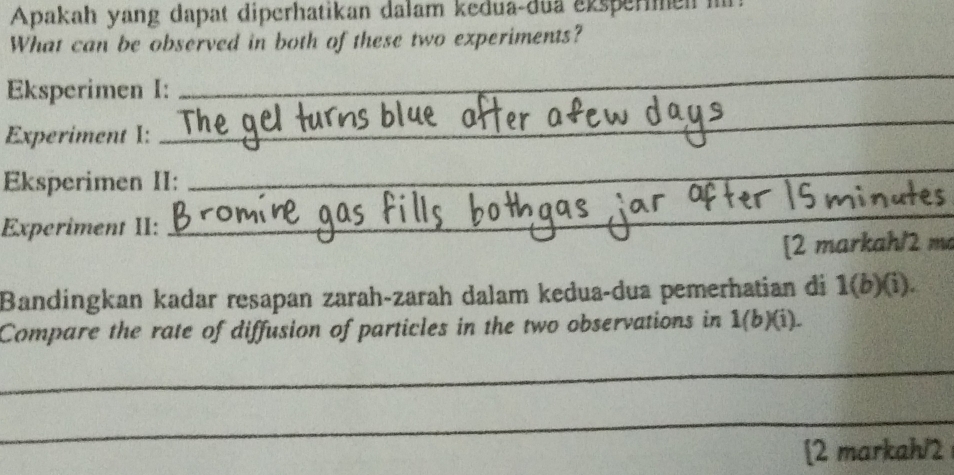 Apakah yang dapat diperhatikan dalam kedua-dua eksperimen ini?
What can be observed in both of these two experiments?
Eksperimen I:
Experiment I: The gel turns blue after a few days
Eksperimen II:
Experiment II: Bromine gas fills both gas jar after 15 minutes
[2 markah/2
Bandingkan kadar resapan zarah-zarah dalam kedua-dua pemerhatian di 1(b)(i).
Compare the rate of diffusion of particles in the two observations in 1(b)(i).
[2 markah/2